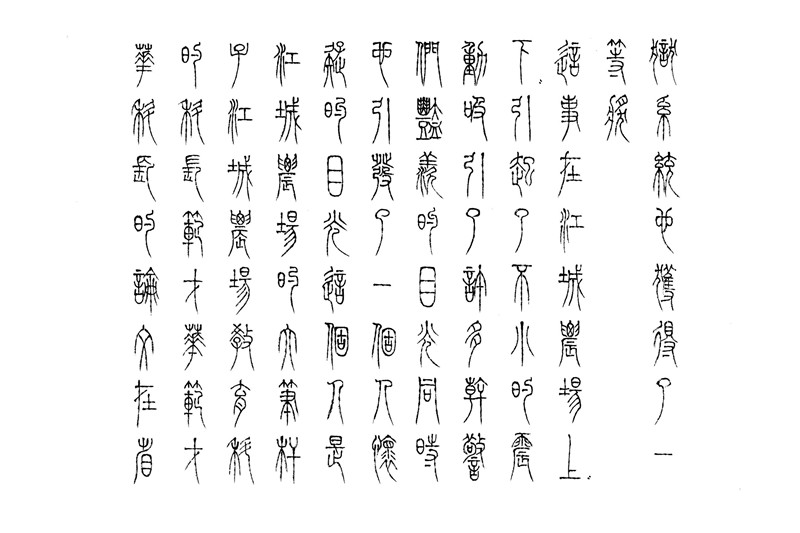 獄系統也獲得了一
等獎
這事在江城農場上
下引起了不小的震
動吸引了許多幹警
們豔羨的目光同時
也引發了一個人懷
疑的目光這個人是
江城農場的文筆杆
子江城農場教育科
的科長範才華範才
華科長的論文在省